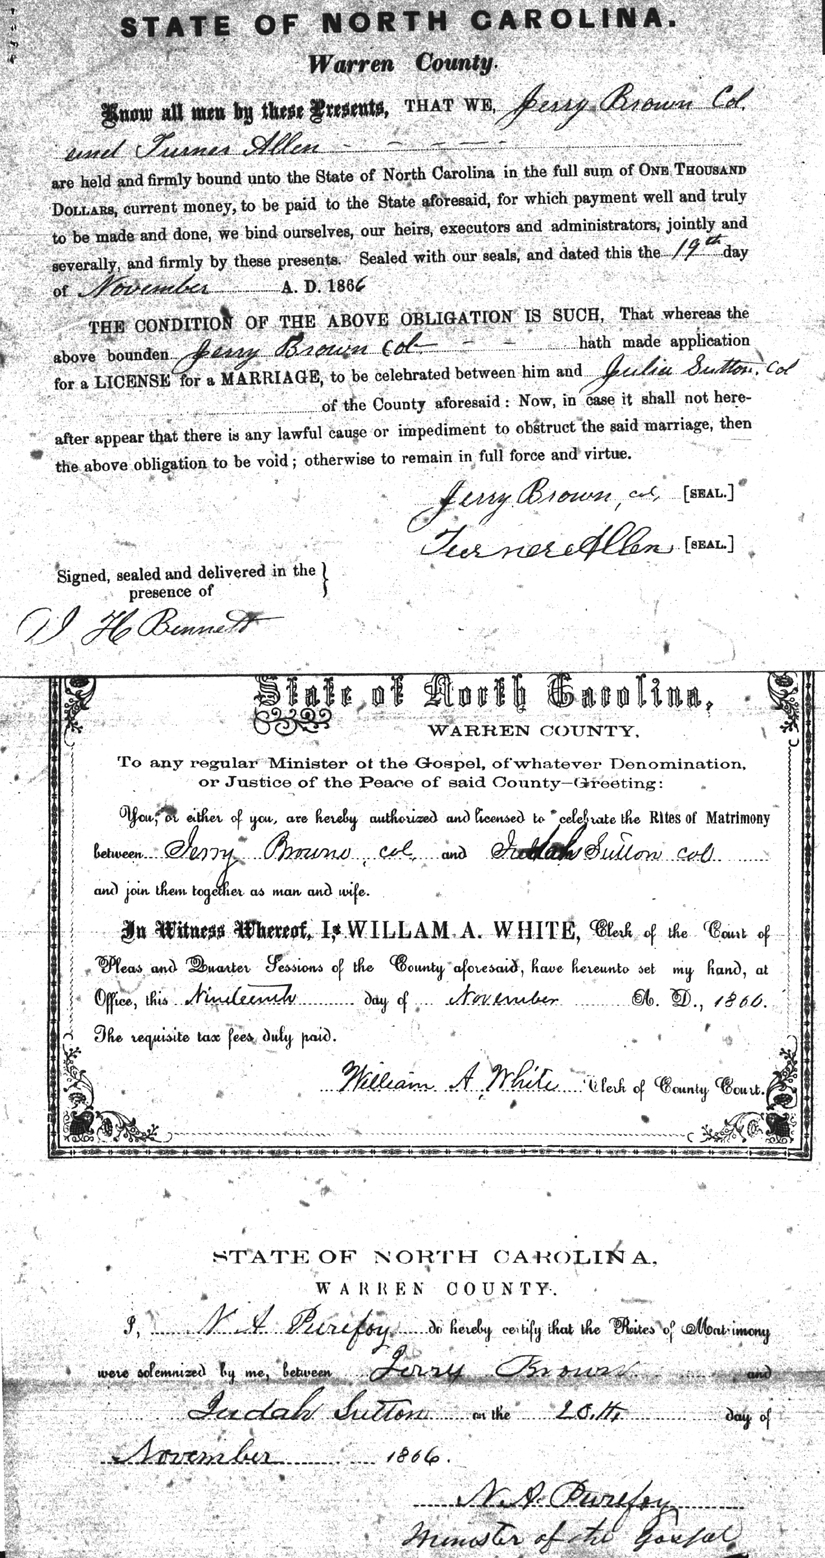 STATE OF NORTH CAROLINA.
Warren County.
Know all men by these Presents, THAT WE, Jerry Brown Col.
and Turner Allen
are held and firmly bound unto the State of North Carolina in the full sum of ONE THOUSAND
DOLLARS, current money, to be paid to the State aforesaid, for which payment well and truly
to be made and done, we bind ourselves, our heirs, executors and administrators, jointly and
severally, and firmly by these presents. Sealed with our seals, and dated this the 19th day
of November A. D. 1866
THE CONDITION OF THE ABOVE OBLIGATION IS SUCH, That whereas the
above bounden Jerry Brown col hath made application
for a LICENSE for a MARRIAGE, to be celebrated between him and Julia Sutton, Col
of the County aforesaid: Now, in case it shall not here-
after appear that there is any lawful cause or impediment to obstruct the said marriage, then
the above obligation to be void; otherwise to remain in full force and virtue.
Jerry Brown, col, [SEAL.]
Turner Allen [SEAL.]
Signed, sealed and delivered in the }
presence of
H Bennett
State of North Carolina,
WARREN COUNTY.
To any regular Minister of the Gospel, of whatever Denomination,
or Justice of the Peace of said County—Greeting:
You, or either of you, are hereby authorized and licensed to celebrate the Rites of Matrimony
between Jerry Browne, col, and Judah Sutton col
and join them together as man and wife.
In Witness Whereof, I, WILLAM A. WHITE, Clerk of the Court of
Pleas and Quarter Sessions of the County aforesaid, have hereunto set my hand, at
Office, this Nineteenth day of November A. D., 1866.
The requisite tax fees duly paid.
William A. White Clerk of County Court.
STATE OF NORTH CAROLINA,
WARREN COUNTY.
I, N. A. Purefoy do hereby certify that the Rites of Matrimony
were solemnized by me, between Jerry Brown and
Judah Sutton on the 20th day of
November 1866.
N. A. Purefoy
Minister of the Gospel